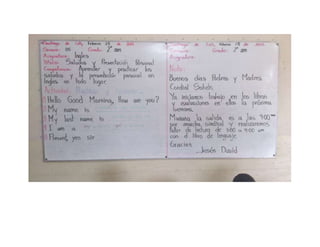 Santiago de Cali, Febrero 18 de 2025
Grado: 2° am
Asignatura: Ingles
Saludos y Presentación Personal
Aprender y practicar los
saludos y la presentación personal en
Ingles en todo lugar.
Actividad:
Hello Good Morning, How are you?
My name is
My last name is
I am a
Present, yes sir
Santiago de Cali, Febrero 18 de
Grado: 2° am
Asignatura:
Nota:
Buenos días Padres y Madres.
Cordial Saludo.
Ya iniciamos trabajo en los libros
y evaluaciones en ellos la próxima
semana.
Mañana la salida es a las 9:00 am
por marcha sindical y realizaremos
taller de lectura de 7:00 a 9:00 am
con el libro de lenguaje
Gracias
Jesús David